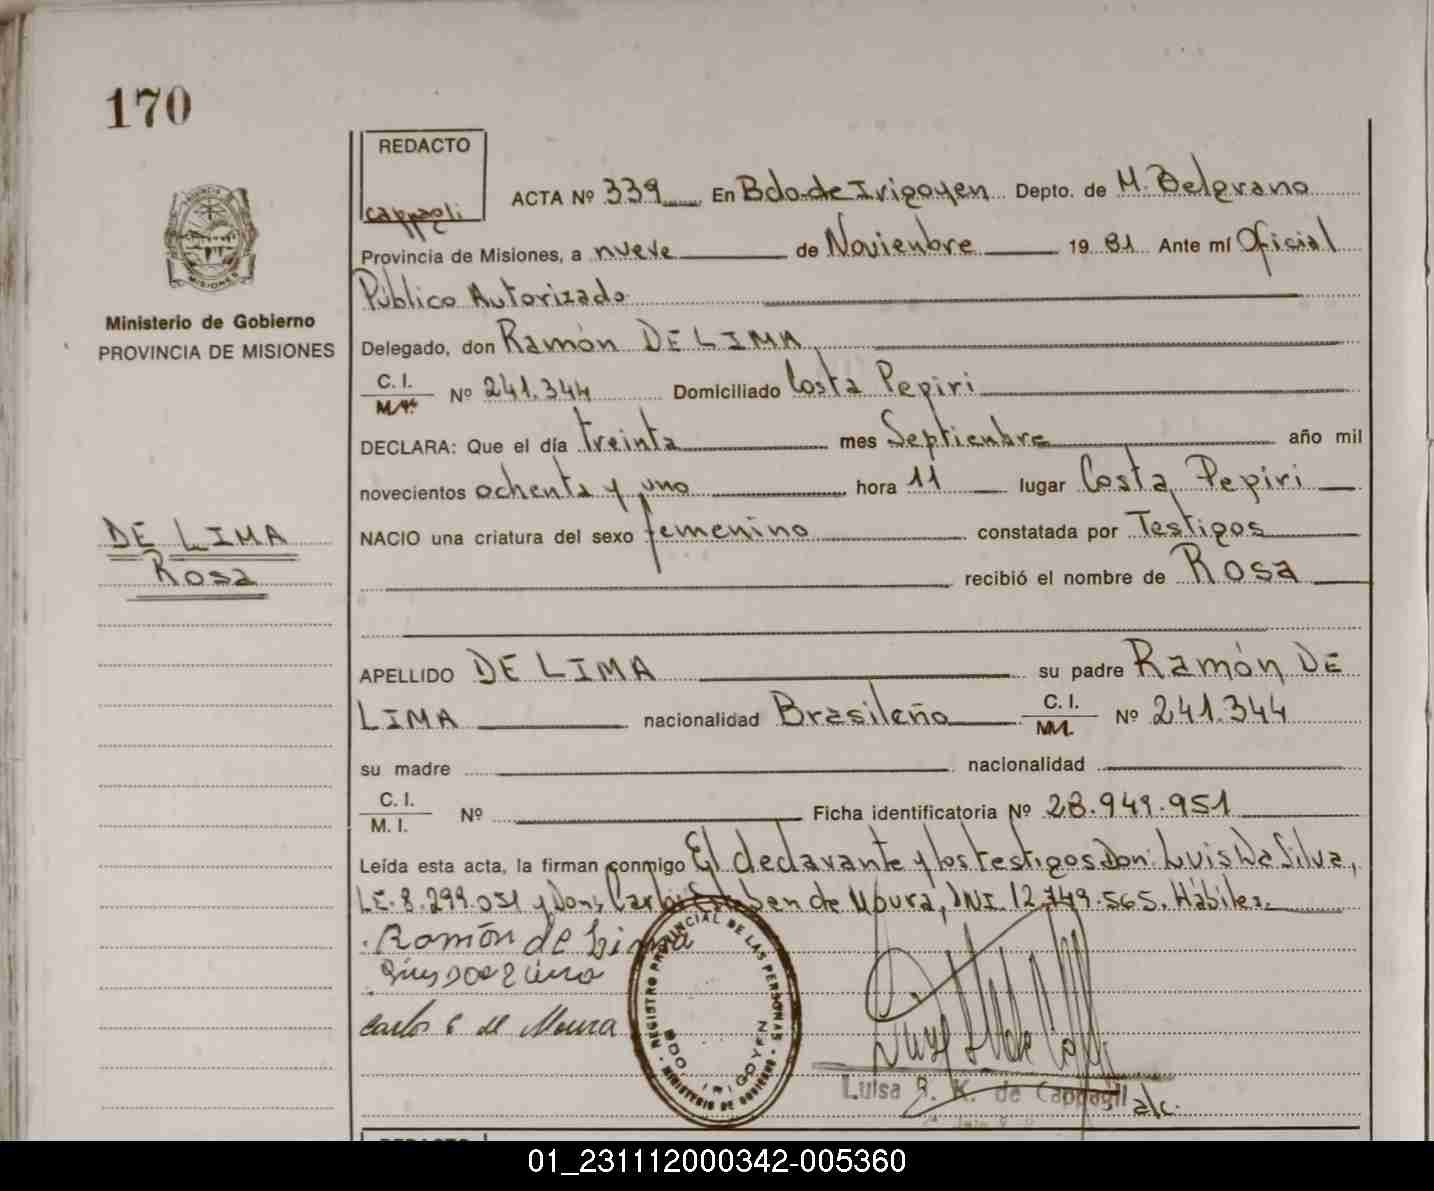 170
REDACTO
Cappagli
ACTA Nº 339 En Bdo. de Irigoyen Depto. de M. Belgrano
Provincia de Misiones, a nueve de Noviembre 19 81 Ante mí Oficial
Público Autorizado
Delegado, don Ramón DE LIMA
C. I. Nº 241.344 Domiciliado Costa Pepiri
M.I.
DECLARA: Que el día treinta mes Septiembre año mil
novecientos ochenta y uno hora 11 lugar Costa Pepiri
NACIO una criatura del sexo femenino constatada por Testigos
recibió el nombre de Rosa
APELLIDO DE LIMA su padre Ramón DE
LIMA nacionalidad Brasileño C. I. Nº 241.344
M.I.
su madre nacionalidad
C. I. Nº Ficha identificatoria Nº 28.949.951
M. I.
Leída esta acta, la firman conmigo El declarante y los testigos Don: Luis Da Silva,
LE. 8.299.051 y Don, Carlos Esteben de Moura, DNI. 12.749.565. Hábiles.
Ramón de Lima
Carlos E de Moura
PROVINCIA
MISIONES
Ministerio de Gobierno
PROVINCIA DE MISIONES
DE LIMA
Rosa
REGISTRO PROVINCIAL DE LAS PERSONAS
BDO. IRIGOYEN
MINISTERIO DE GOBIERNO
Luisa B. K. de Cappagli
a/c.
REDACTO
01_231112000342-005360